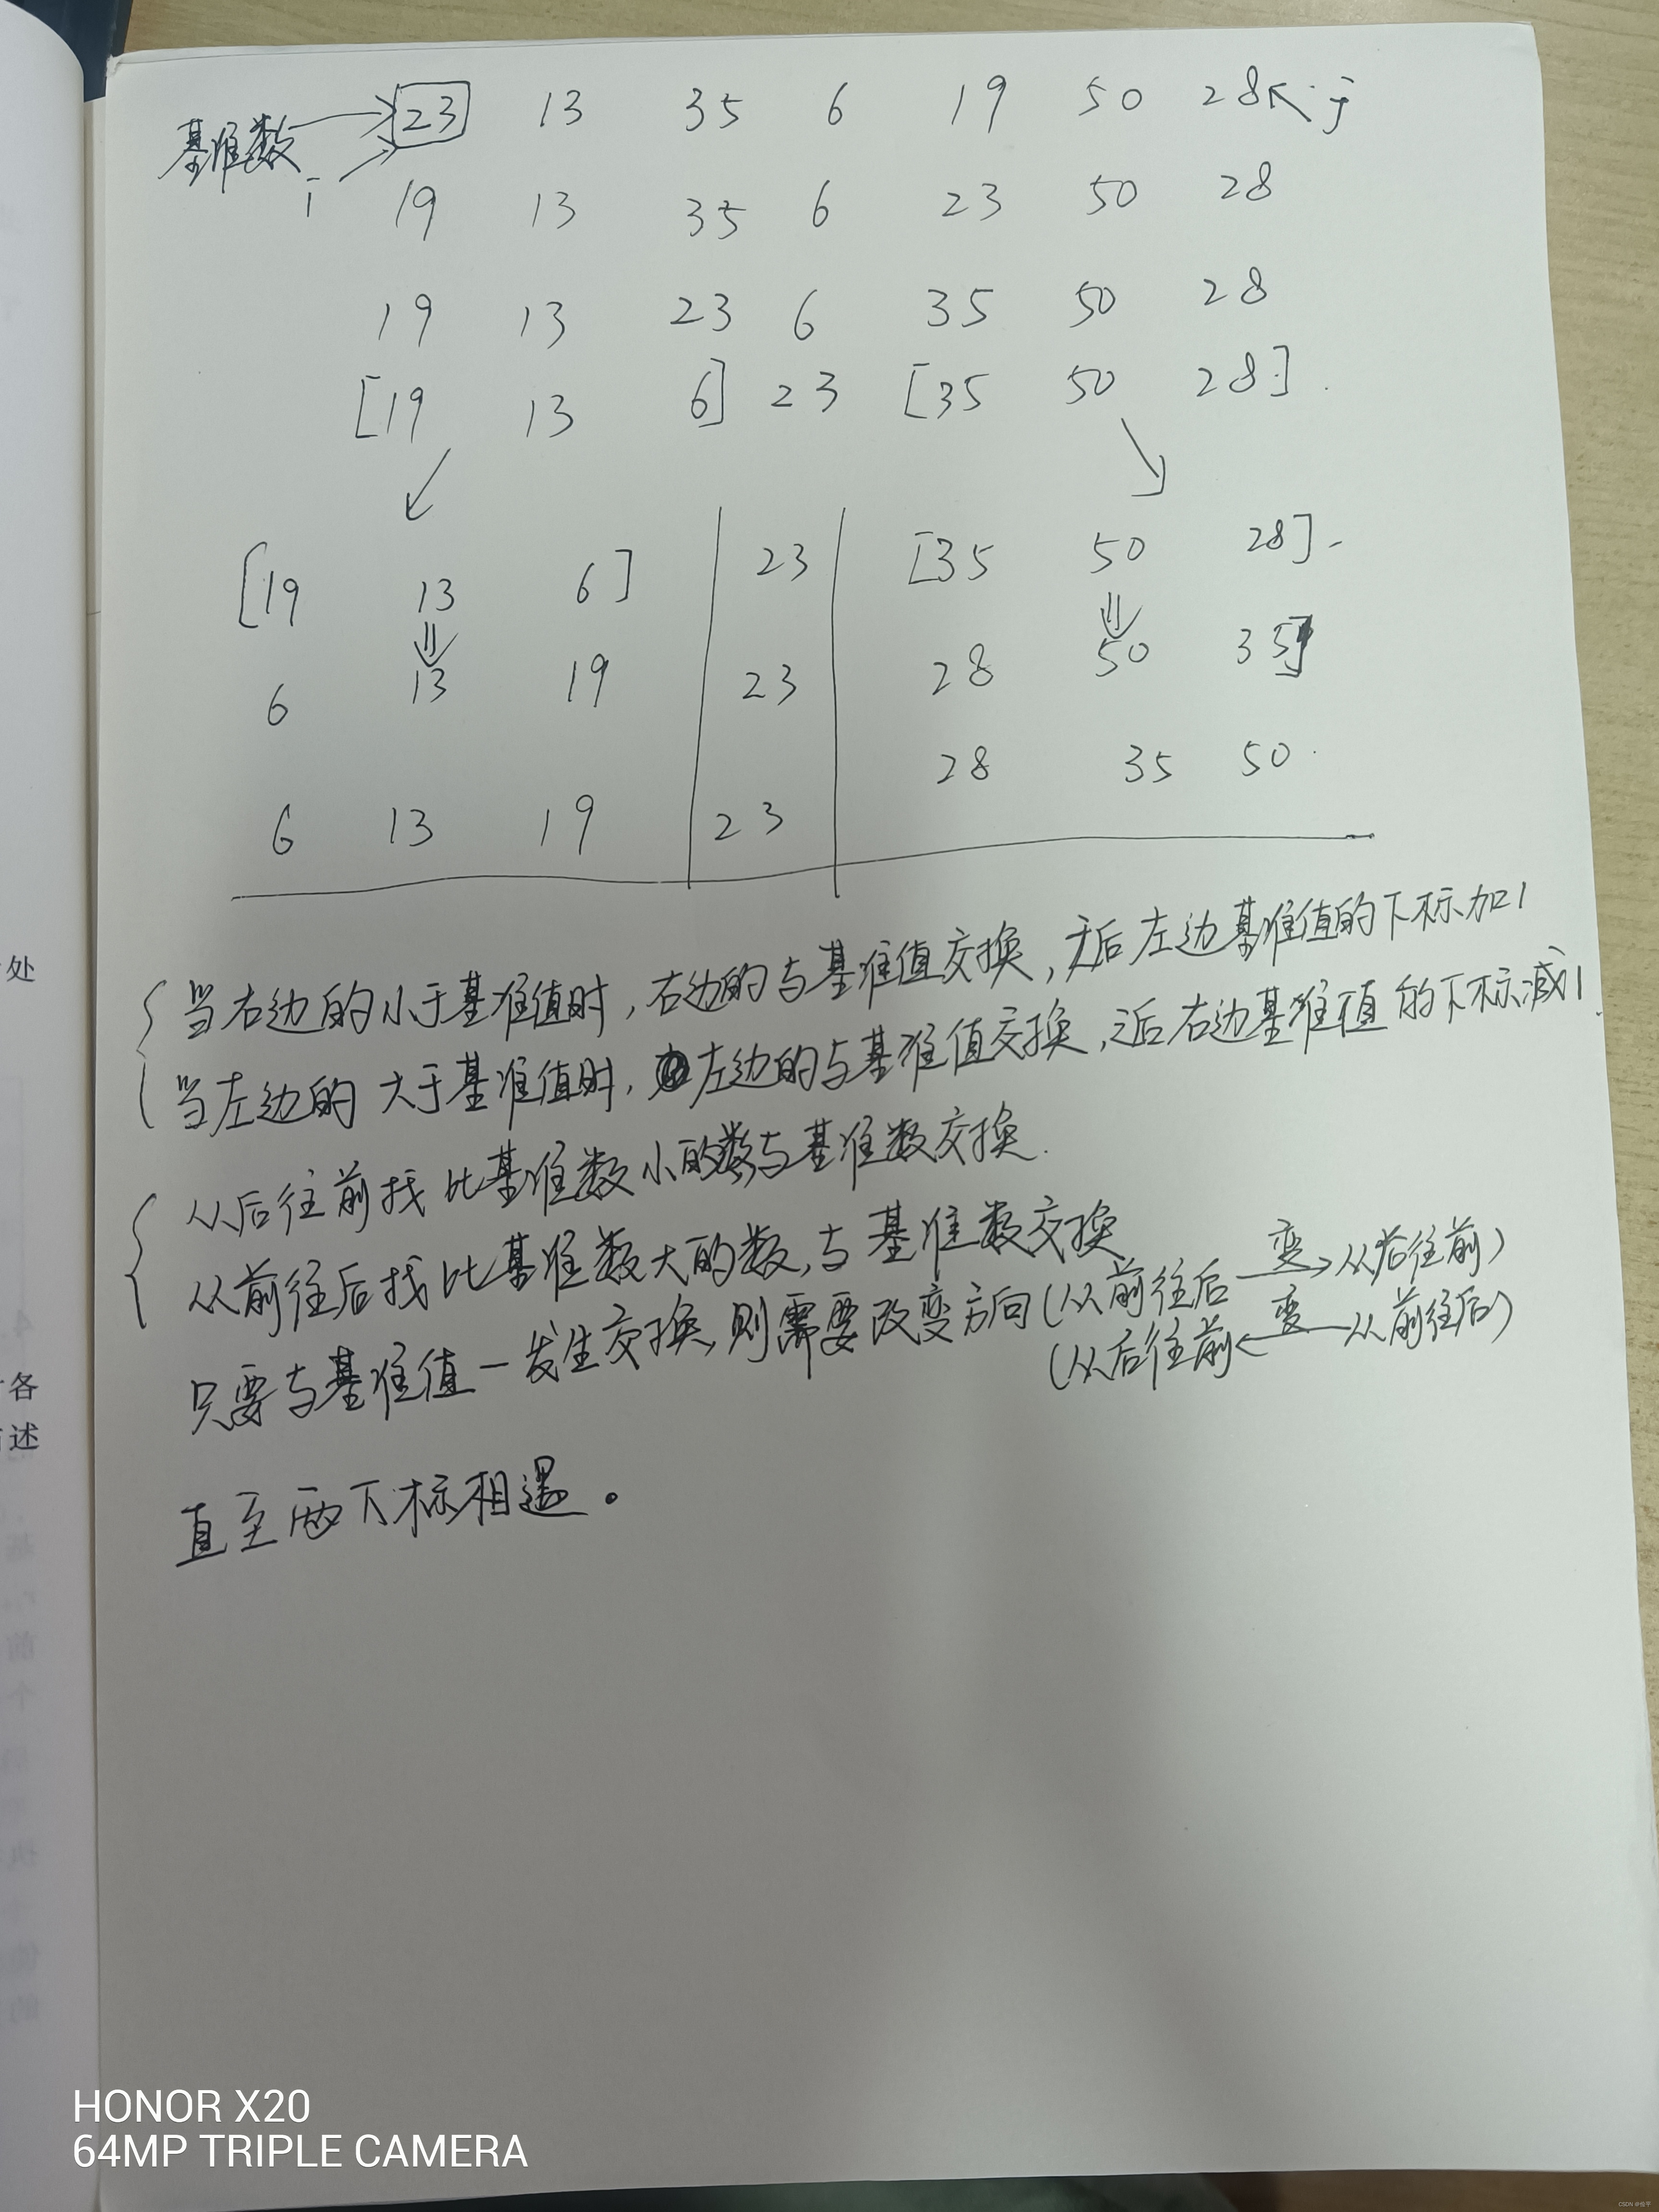 基准数 23 13 35 6 19 50 28 j
i 19 13 35 6 23 50 28
19 13 23 6 35 50 28
[19 13 6] 23 [35 50 28]
[19 13 6] 23 [35 50 28]
6 13 19 23 28 50 35]
28 35 50
6 13 19 23
当右边的小于基准值时,右边的与基准值交换,之后左边基准值的下标加1
当左边的大于基准值时,左边的与基准值交换,之后右边基准值的下标减1
从后往前找比基准数小的数与基准数交换.
从前往后找比基准数大的数,与基准数交换
只要与基准值一发生交换,则需要改变方向(从前往后 变 从后往前)
(从后往前 变 从前往后)
直至两下标相遇。
处
4
各
述
HONOR X20
64MP TRIPLE CAMERA